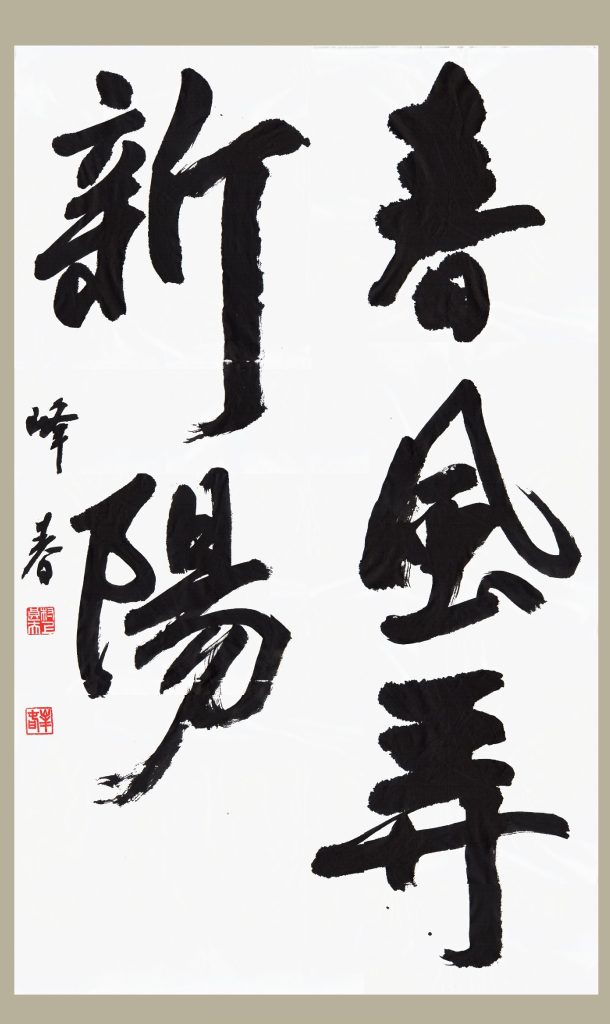 春風弄
新陽
峰春